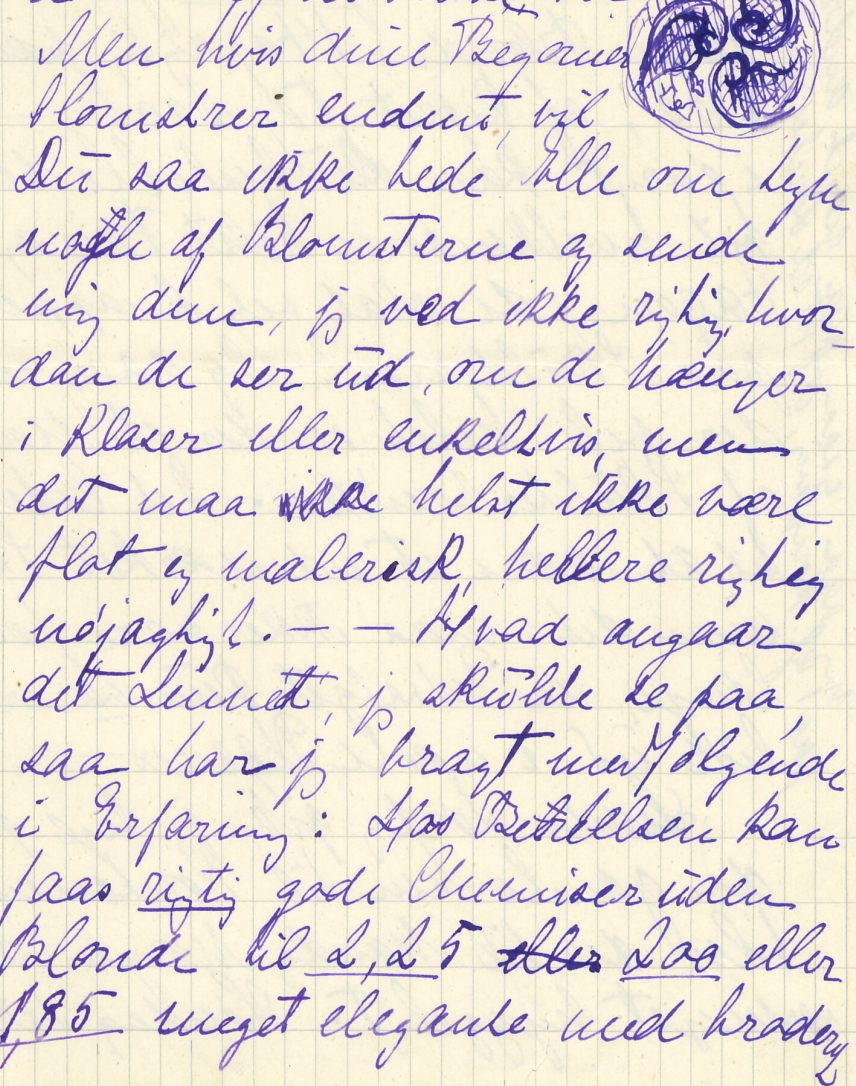 Men hvis dine Begonier
blomstrer endnu, vil
Du saa ikke bede Elle om tegne
nogle af Blomsterne og sende
mig dem, jeg ved ikke rigtig, hvor-
dan de ser ud, om de hænger
i Klaser eller enkeltvis, men
det maa ikke helst ikke være
flot og malerisk, hellere rigtig
nøjagtigt. — — Hvad angaar
det Linned, jeg skulde se paa,
saa har jeg bragt medfølgende
i Erfaring: Hos kan
faas rigtig gode Chemiser uden
Blonde til 2,25 eller 200 eller
1,85 meget elegante med brodery